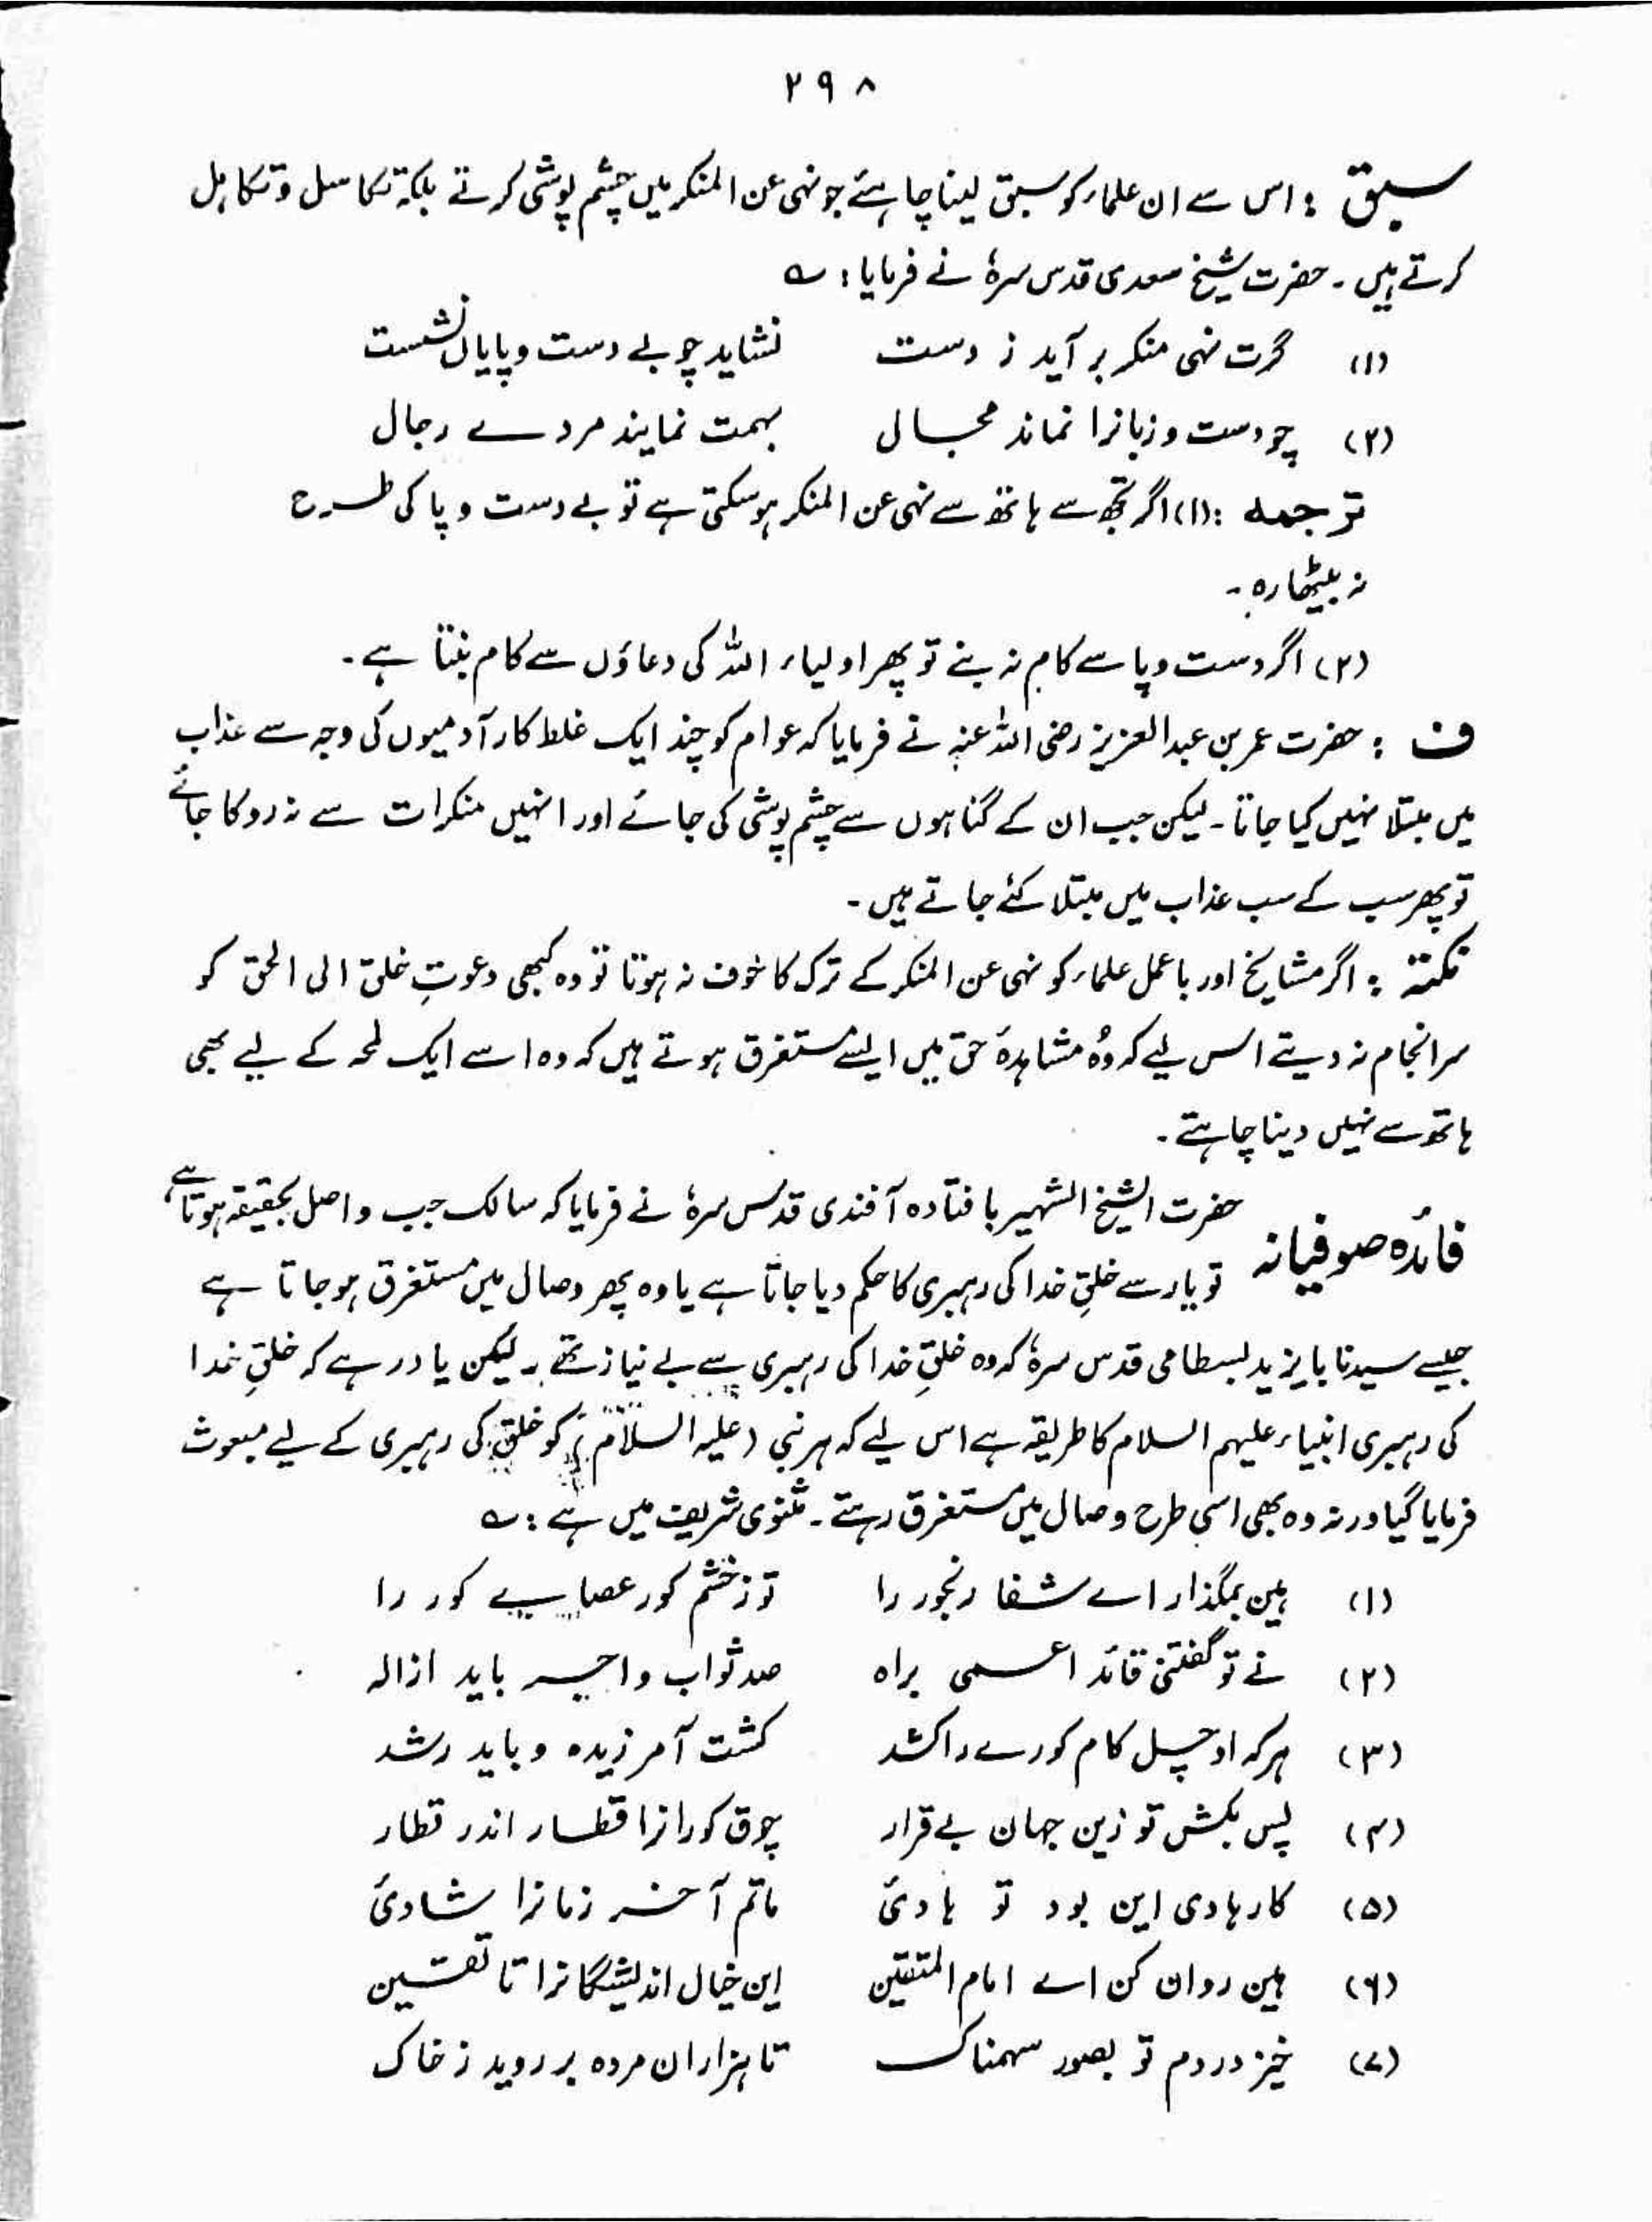 ۲۹۸
سبق : اس سے ان علماء کو سبق لینا چاہئے جو نہی عن المنکر میں چشم پوشی کرتے بلکہ تکاسل و تکاہل
کرتے ہیں ۔ حضرت شیخ سعدی قدس سرہٗ نے فرمایا : ؎
(۱) گرت نہی منکر بر آید ز دست نشاید چو بے دست و پایاں نشست
(۲) چو دست و زبانرا نماند مجال بہمت نمایند مردے رجال
ترجمہ : (۱) اگر تجھ سے ہاتھ سے نہی عن المنکر ہو سکتی ہے تو بے دست و پا کی طرح
نہ بیٹھا رہ ۔
(۲) اگر دست و پا سے کام نہ بنے تو پھر اولیاء اللہ کی دعاؤں سے کام بنتا ہے ۔
ف : حضرت عمر بن عبدالعزیز رضی اللہ عنہ نے فرمایا کہ عوام کو چند ایک غلط کار آدمیوں کی وجہ سے عذاب
میں مبتلا نہیں کیا جاتا ۔ لیکن جب ان کے گناہوں سے چشم پوشی کی جائے اور انہیں منکرات سے نہ روکا جائے
تو پھر سب کے سب عذاب میں مبتلا کئے جاتے ہیں ۔
نکتہ : اگر مشایخ اور باعمل علماء کو نہی عن المنکر کے ترک کا خوف نہ ہوتا تو وہ کبھی دعوتِ خلق الی الحق کو
سرانجام نہ دیتے اس لیے کہ وُہ مشاہدۂ حق میں ایسے مستغرق ہوتے ہیں کہ وہ اسے ایک لمحہ کے لیے بھی
ہاتھ سے نہیں دینا چاہتے ۔
فائدہ صوفیانہ حضرت الشیخ الشہیر بافتادہ آفندی قدس سرہٗ نے فرمایا کہ سالک جب واصل بحقیقہ ہوتا ہے
تو یار سے خلقِ خدا کی رہبری کا حکم دیا جاتا ہے یا وہ پھر وصال میں مستغرق ہو جاتا ہے
جیسے سیدنا بایزید بسطامی قدس سرہٗ کہ وہ خلقِ خدا کی رہبری سے بے نیاز تھے ۔ لیکن یاد رہے کہ خلقِ خدا
کی رہبری انبیاء علیہم السلام کا طریقہ ہے اس لیے کہ ہر نبی (علیہ السلام) کو خلق کی رہبری کے لیے مبعوث
فرمایا گیا ورنہ وہ بھی اسی طرح وصال میں مستغرق رہتے ۔ مثنوی شریف میں ہے : ؎
(۱) ہین بمگذار اے شفا رنجور را تو ز خشم کور عصایے کور را
(۲) نے تو گفتی قائد اعمی براہ صد ثواب و اجر باید از الہ
(۳) ہر کہ او چہل کام کورے را کشد کشت آمرزیدہ و باید رشد
(۴) پس بکش تو زین جہان بے قرار جوق کورانرا قطار اندر قطار
(۵) کار ہادی این بود تو ہادئ ماتم آخر زمانرا شادئ
(۶) ہین روان کن اے امام المتقین این خیال اندیشگانرا تا یقین
(۷) خیز در دم تو بصور سہمناک تا ہزاران مردہ بر روید ز خاک